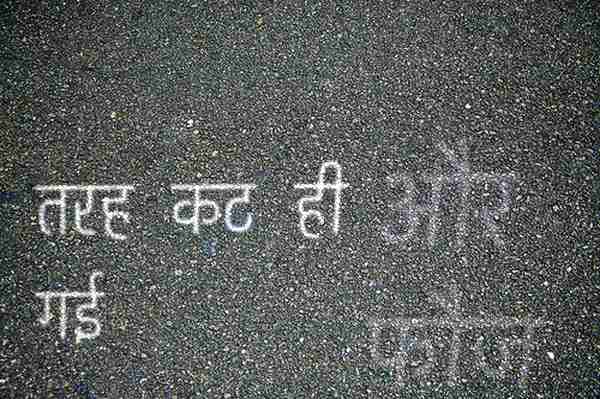 तरह कट ही और
गई
फोन